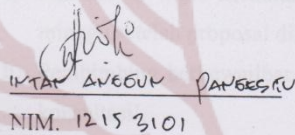 INTAN ANGGUN PANGESTU
NIM. 12153101